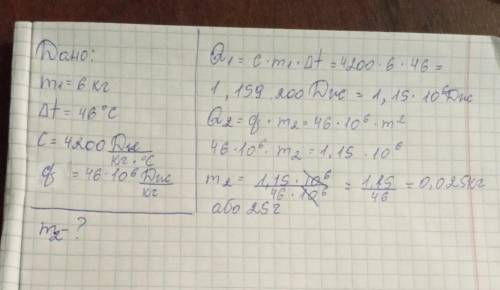 Дано:
m₁=6 кг
Δt=46°C
C=4200 Дж/кг·°C
q=46·10⁶ Дж/кг
m₂-?
Q₁=c·m₁·Δt=4200·6·46=
1,159 200 Дж=1,15·10⁶ Дж
Q₂=q·m₂=46·10⁶·m²
46·10⁶·m₂=1,15·10⁶
m₂=1,15·10⁶/46·10⁶=1,15/46=0,025кг
або 25г